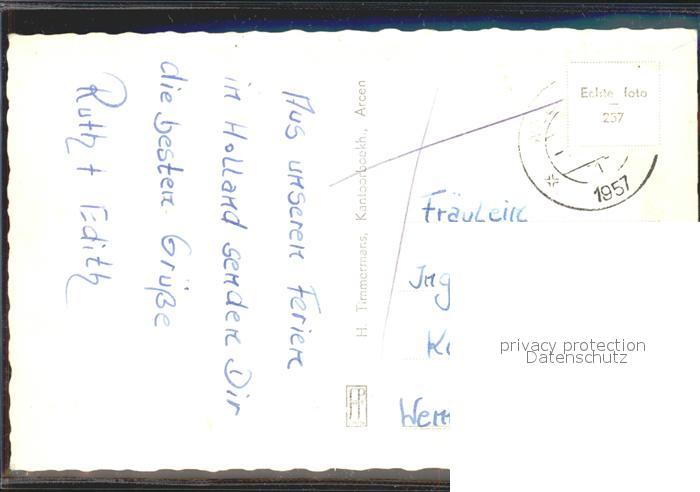 Aus unseren Ferien
in Holland senden Dir
die besten Grüße
Ruth + Edith
H. Timmermans, Kantoorboekh., Arcen
Echte foto
257
1957
Fräulein
privacy protection
Datenschutz